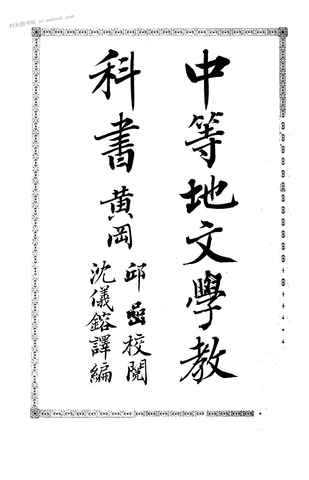 中等地文學教
科書黃岡
邱 校閱
沈儀鎔譯編